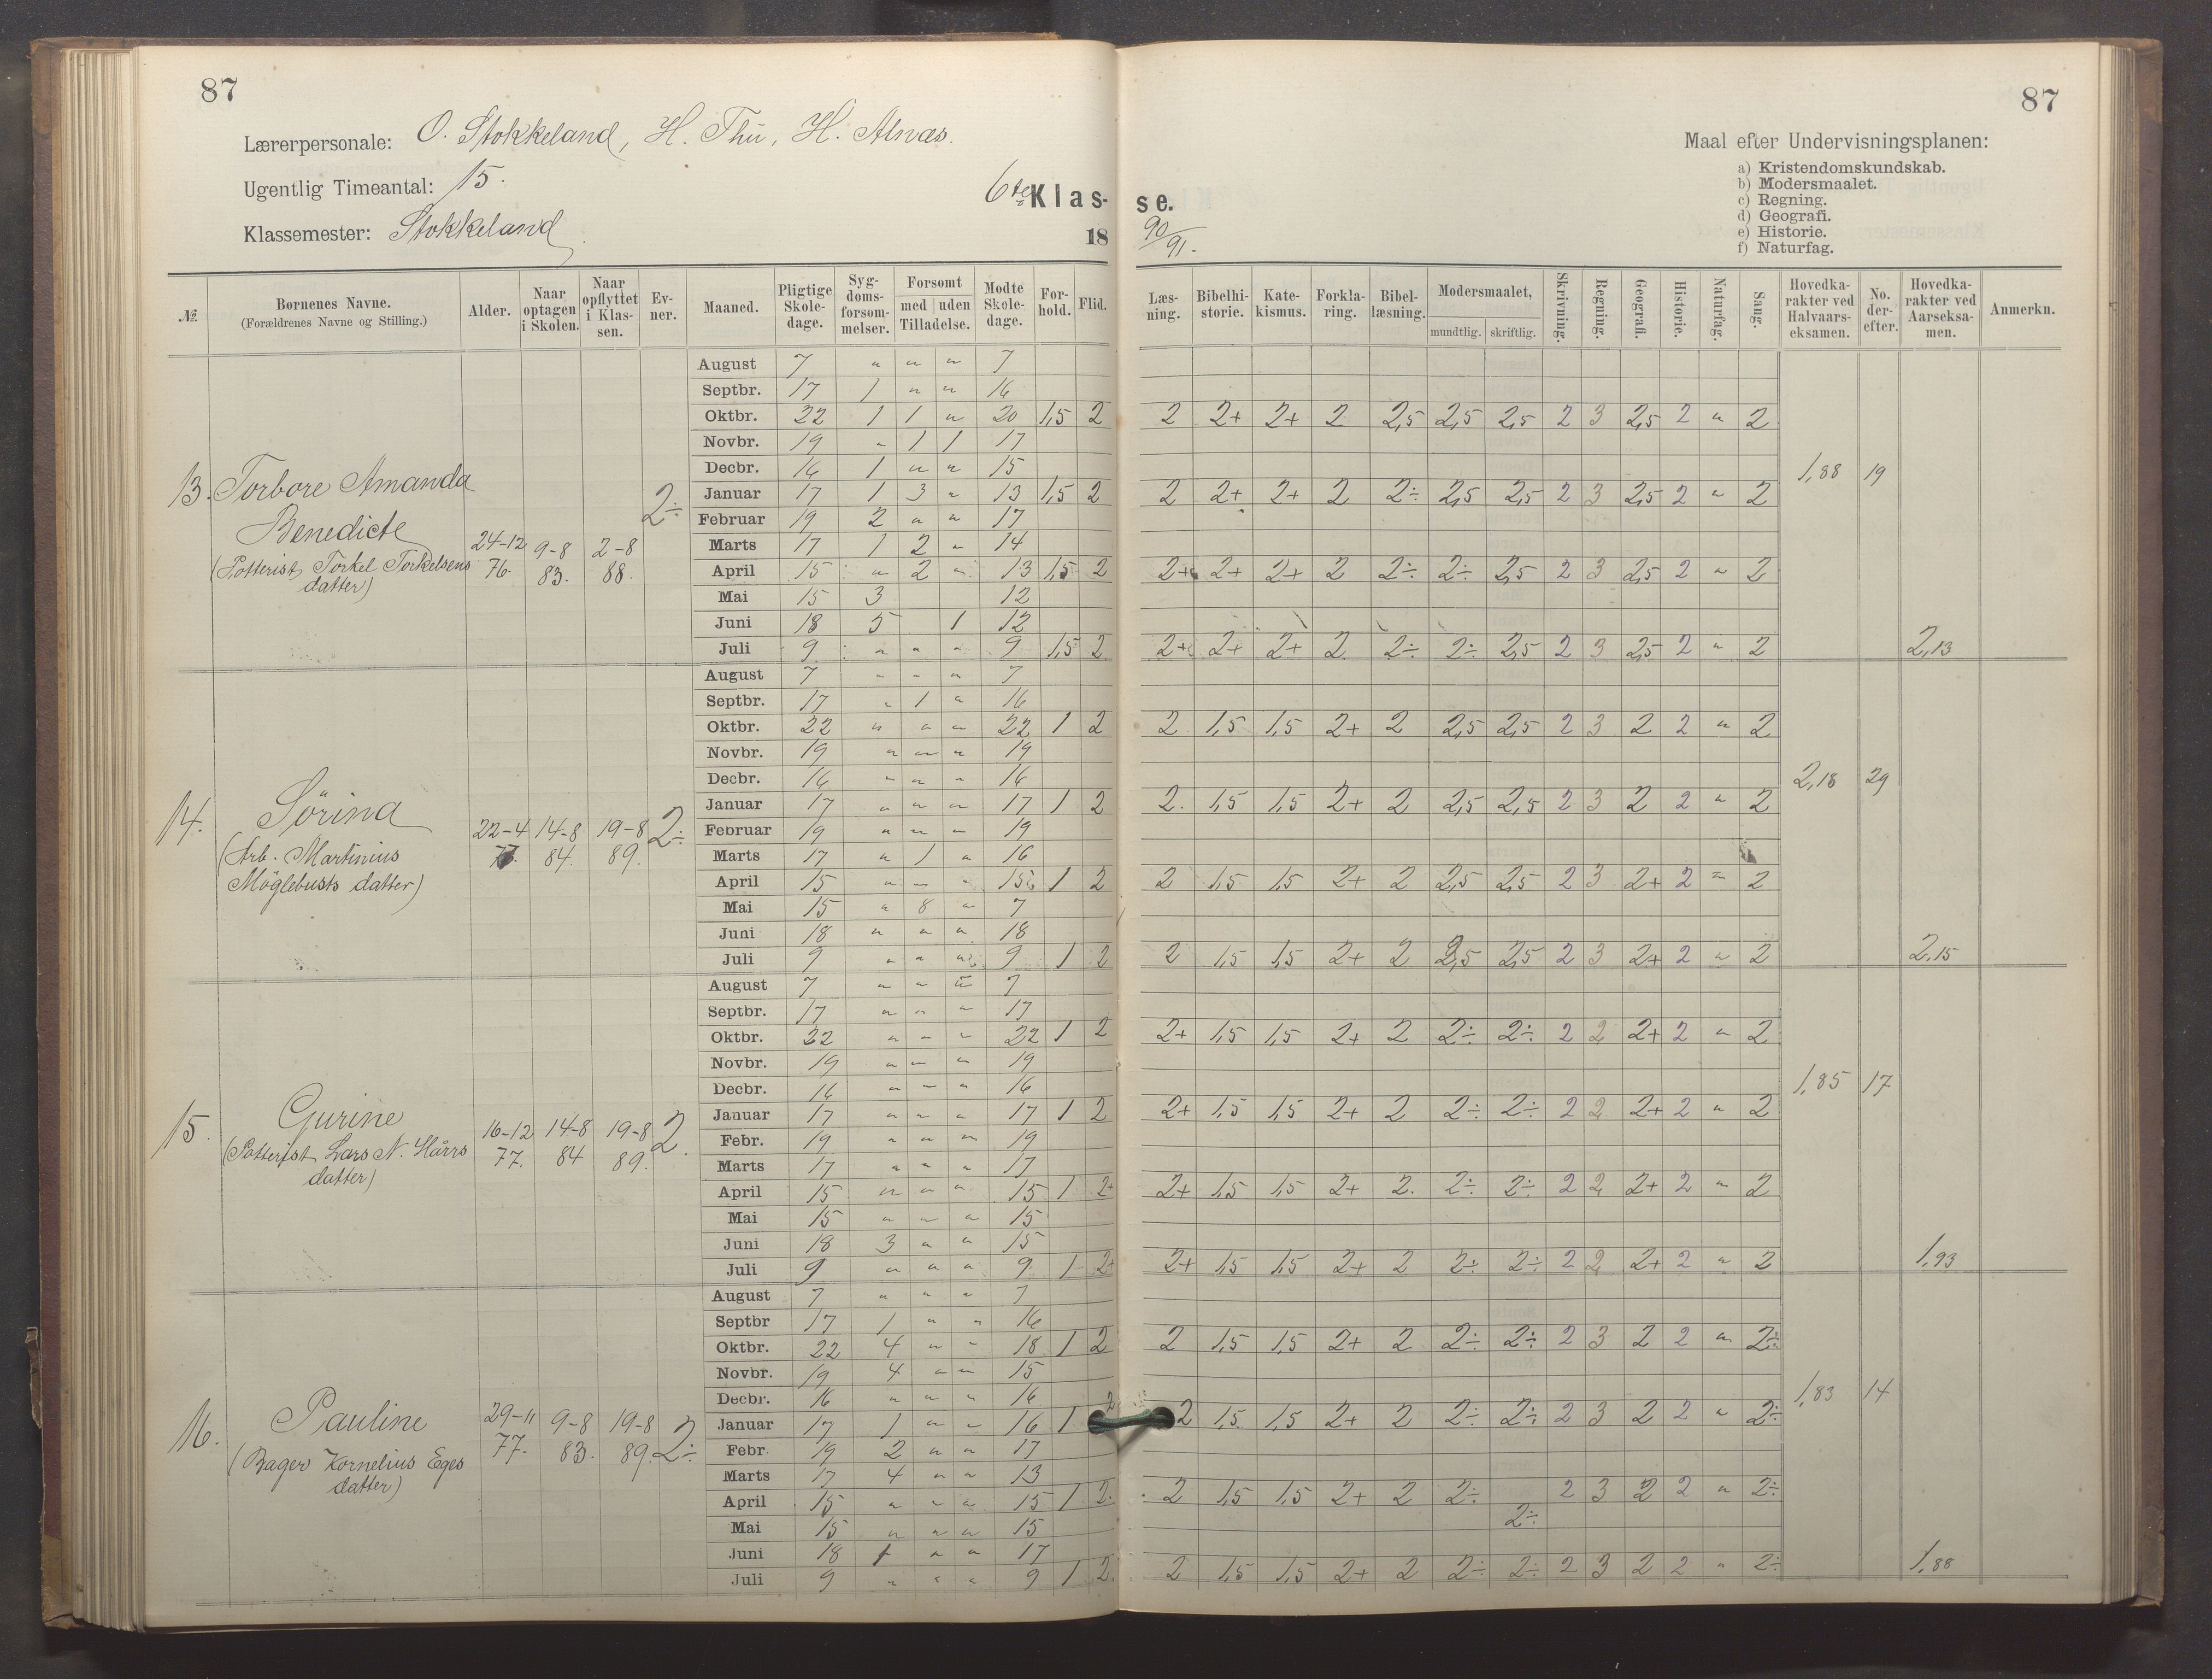 87
87
Lærerpersonale: O. Stokkeland, H. Thu, H. Alnæs.
Ugentlig Timeantal: 15.
Klassemester: Stokkeland
6te Klas-se.
18 90/91.
Maal efter Undervisningsplanen:
a) Kristendomskundskab.
b) Modersmaalet.
c) Regning.
d) Geografi.
e) Historie.
f) Naturfag.
№ Børnenes Navne. (Forældrenes Navne og Stilling.) Alder. Naar optagen i Skolen. Naar opflyttet i Klassen. Evner. Maaned. Pligtige Skoledage. Sygdomsforsømmelser. Forsømt med uden Tilladelse. Mødte Skoledage. Forhold. Flid. Læsning. Bibelhistorie. Katekismus. Forklaring. Bibellæsning. Modersmaalet, mundtlig. skriftlig. Skrivning. Regning. Geografi. Historie. Naturfag. Sang. Hovedkarakter ved Halvaarseksamen. No. derefter. Hovedkarakter ved Aarseksamen. Anmerkn.
13. Torbore Amanda
Benedicte
(Potterist Torkel Torkelsens
datter)
24-12 76. 9-8 83. 2-8 88. 2÷
August 7 " " " 7
Septbr. 17 1 " " 16
Oktbr. 22 1 1 " 20 1,5 2 2 2+ 2+ 2 2,5 2,5 2,5 2 3 2,5 2 " 2
Novbr. 19 " 1 1 17
Decbr. 16 1 " " 15
1,88 19
Januar 17 1 3 " 13 1,5 2 2 2+ 2+ 2 2÷ 2,5 2,5 2 3 2,5 2 " 2
Februar 19 2 " " 17
Marts 17 1 2 " 14
April 15 " 2 " 13 1,5 2 2+ 2+ 2+ 2 2÷ 2÷ 2,5 2 3 2,5 2 " 2
Mai 15 3 12
Juni 18 5 1 12
Juli 9 " " " 9 1,5 2 2+ 2+ 2+ 2 2÷ 2÷ 2,5 2 3 2,5 2 " 2 2,13
14. Sörina
(Arb. Martinius
Möglebusts datter)
22-4 77. 14-8 84. 19-8 89. 2÷
August 7 " " " 7
Septbr. 17 " 1 " 16
Oktbr. 22 " " " 22 1 2 2 1,5 1,5 2+ 2 2,5 2,5 2 3 2 2 " 2
Novbr. 19 " " " 19
Decbr. 16 " " " 16
2,18 29
Januar 17 " " " 17 1 2 2. 1,5 1,5 2+ 2 2,5 2,5 2 3 2 2 " 2
Februar 19 " " " 19
Marts 17 " 1 " 16
April 15 " " " 15 1 2 2 1,5 1,5 2+ 2 2,5 2,5 2 3 2+ 2 " 2
Mai 15 " 8 " 7
Juni 18 " " " 18
Juli 9 " " " 9 1 2 2 1,5 1,5 2+ 2 2,5 2,5 2 3 2+ 2 " 2 2,15
15. Gurine
(Potterist Lars N. Hårrs
datter)
16-12 77. 14-8 84 19-8 89. 2.
August 7 " " " 7
Septbr. 17 " " " 17
Oktbr. 22 " " " 22 1 2 2+ 1,5 1,5 2+ 2 2÷ 2÷ 2 2 2+ 2 " 2
Novbr. 19 " " " 19
Decbr. 16 " " " 16
1,85 17
Januar 17 " " " 17 1 2 2+ 1,5 1,5 2+ 2 2÷ 2÷ 2 2 2+ 2 " 2
Febr. 19 " " " 19
Marts 17 " " " 17
April 15 " " " 15 1 2+ 2+ 1,5 1,5 2+ 2. 2÷ 2÷ 2 2 2+ 2 " 2
Mai 15 " " " 15
Juni 18 3 " " 15
Juli 9 " " " 9 1 2+ 2+ 1,5 1,5 2+ 2 2÷ 2÷ 2 2 2+ 2 " 2 1,93
16. Pauline
(Bager Kornelius Eges
datter)
29-11 77. 9-8 83. 19-8 89. 2÷
August 7 " " " 7
Septbr 17 1 " " 16
Oktbr. 22 4 " " 18 1 2 2 1,5 1,5 2+ 2 2÷ 2÷ 2 3 2 2 " 2÷
Novbr. 19 4 " " 15
Decbr. 16 " " " 16
1,83 14
Januar 17 1 " " 16 1 2 2 1,5 1,5 2+ 2 2÷ 2÷ 2 3 2 2 " 2÷
Febr. 19 2 " " 17
Marts 17 4 " " 13
April 15 " " " 15 1 2. 2 1,5 1,5 2+ 2 2÷ 2÷ 2 3 2 2 " 2÷
Mai 15 " " " 15
Juni 18 1 " " 17
Juli 9 " " " 9 1 2. 2 1,5 1,5 2+ 2 2÷ 2÷ 2 3 2 2 " 2÷ 1,88